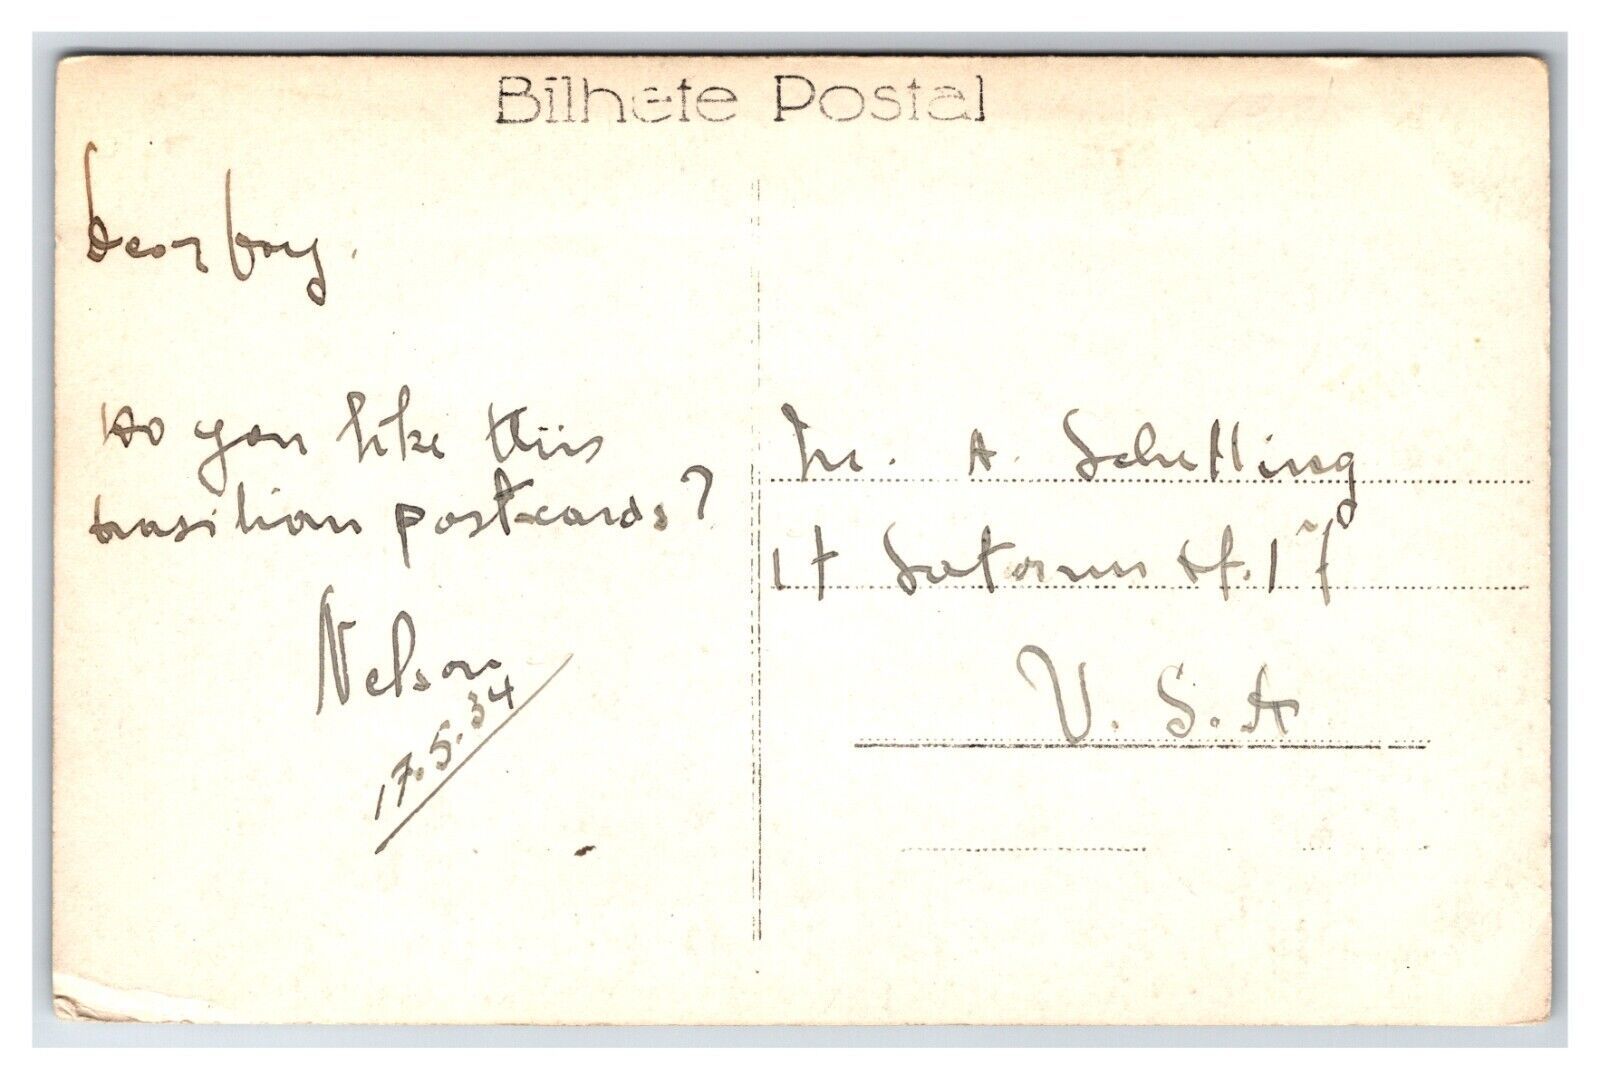 Bilhete Postal
Dear boy.
Do you like this
brasilian postcards?
Nelson
17.5.34
Mr. A. Schelling
17 St. 17
U.S.A